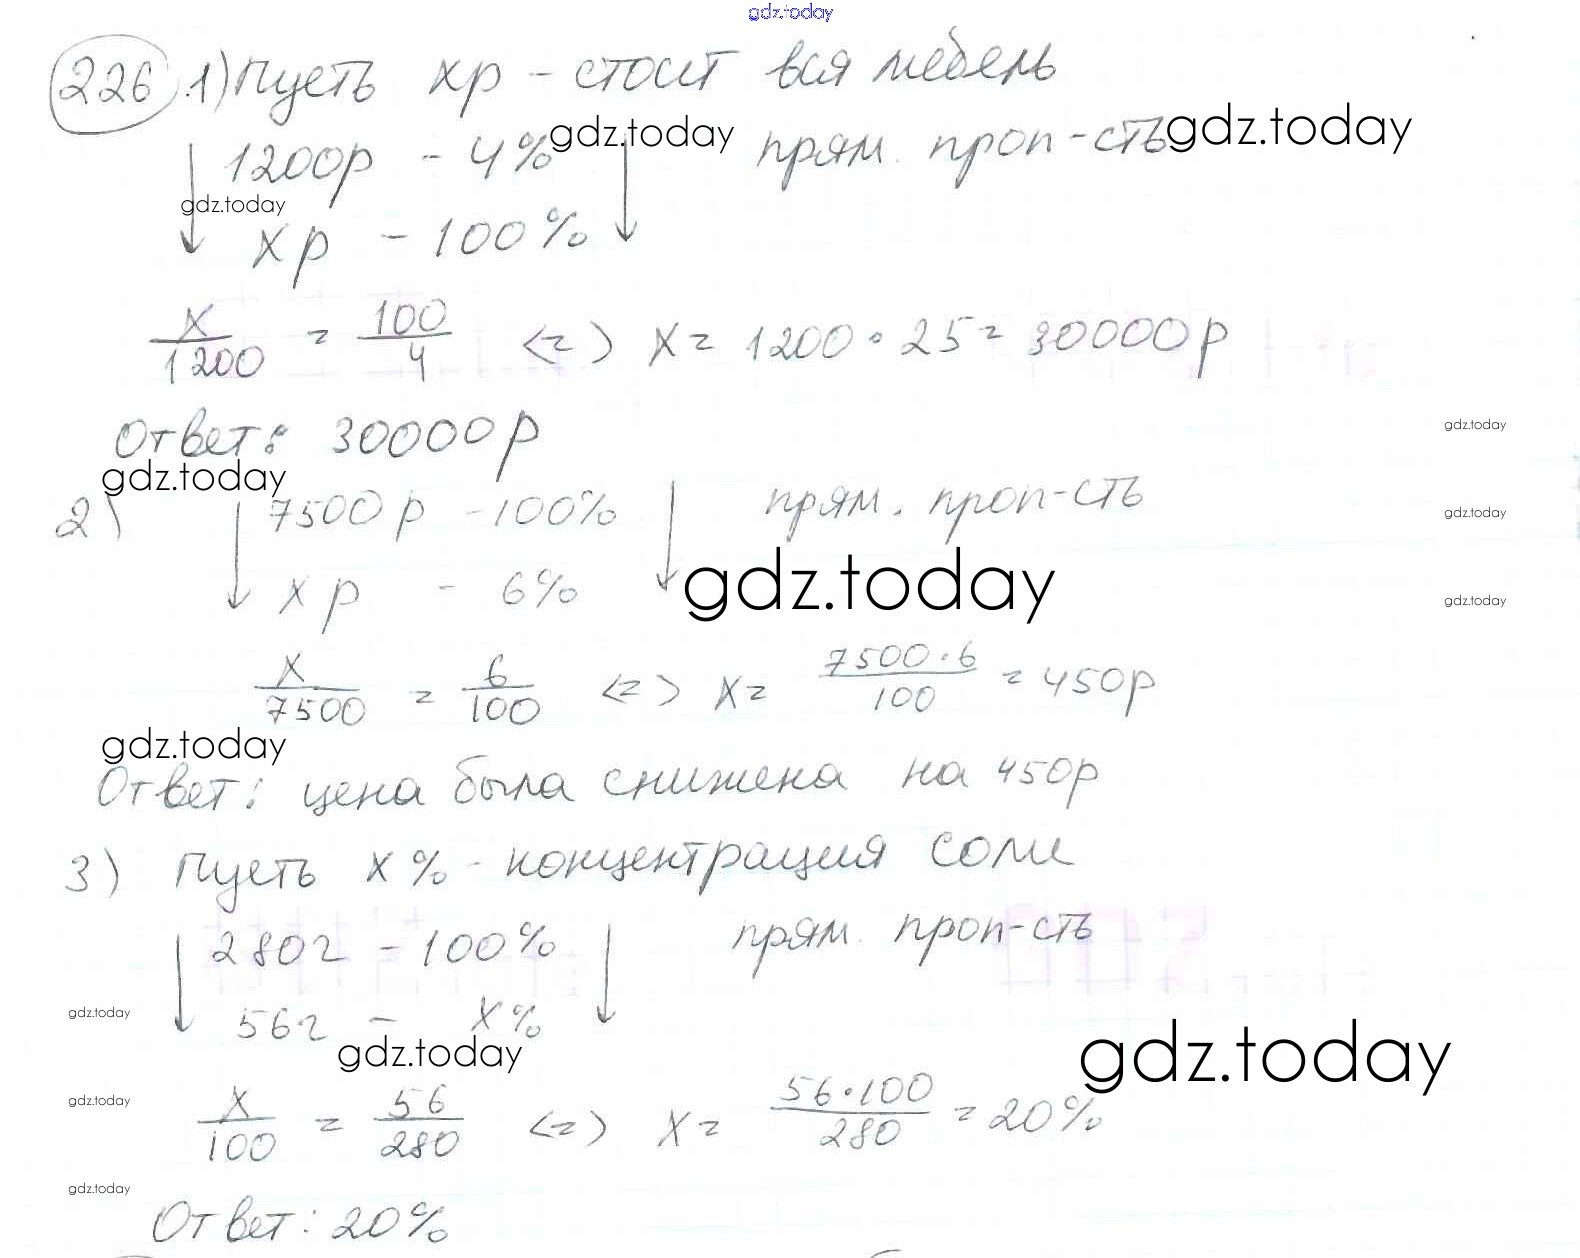 gdz.today
226 1) Пусть xр - стоит вся мебель
1200р - 4% gdz.today прям. проп-сть gdz.today
gdz.today
xр - 100%
x/1200 = 100/4 <=> x = 1200 • 25 = 30000р
Ответ: 30000р
gdz.today
gdz.today
2) 7500р - 100% прям. проп-сть
gdz.today
xр - 6% gdz.today
gdz.today
x/7500 = 6/100 <=> x = 7500•6/100 = 450р
gdz.today
Ответ: цена была снижена на 450р
3) Пусть x% - концентрация соли
280г - 100% прям. проп-сть
gdz.today
56г - x%
gdz.today gdz.today
gdz.today
x/100 = 56/280 <=> x = 56•100/280 = 20%
gdz.today
Ответ: 20%